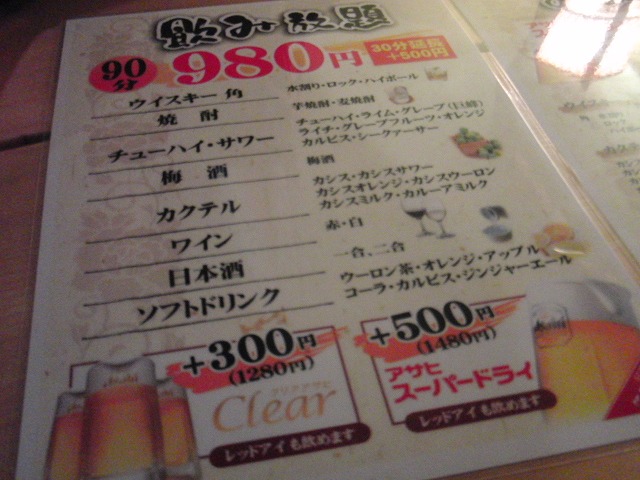 飲み放題
90分 980円 30分延長 +500円
ウイスキー 角 水割り・ロック・ハイボール
焼酎 芋焼酎・麦焼酎
チューハイ・サワー チューハイ・ライム・グレープ(巨峰)
ライチ・グレープフルーツ・オレンジ
カルピス・シークァーサー
梅酒 梅酒
カクテル カシス・カシスサワー
カシスオレンジ・カシスウーロン
カシスミルク・カルーアミルク
ワイン 赤・白
日本酒 一合、二合
ソフトドリンク ウーロン茶・オレンジ・アップル
コーラ・カルピス・ジンジャーエール
+300円
(1280円)
クリアアサヒ
Clear
レッドアイも飲めます
+500円
(1480円)
アサヒ
スーパードライ
レッドアイも飲めます
Asahi